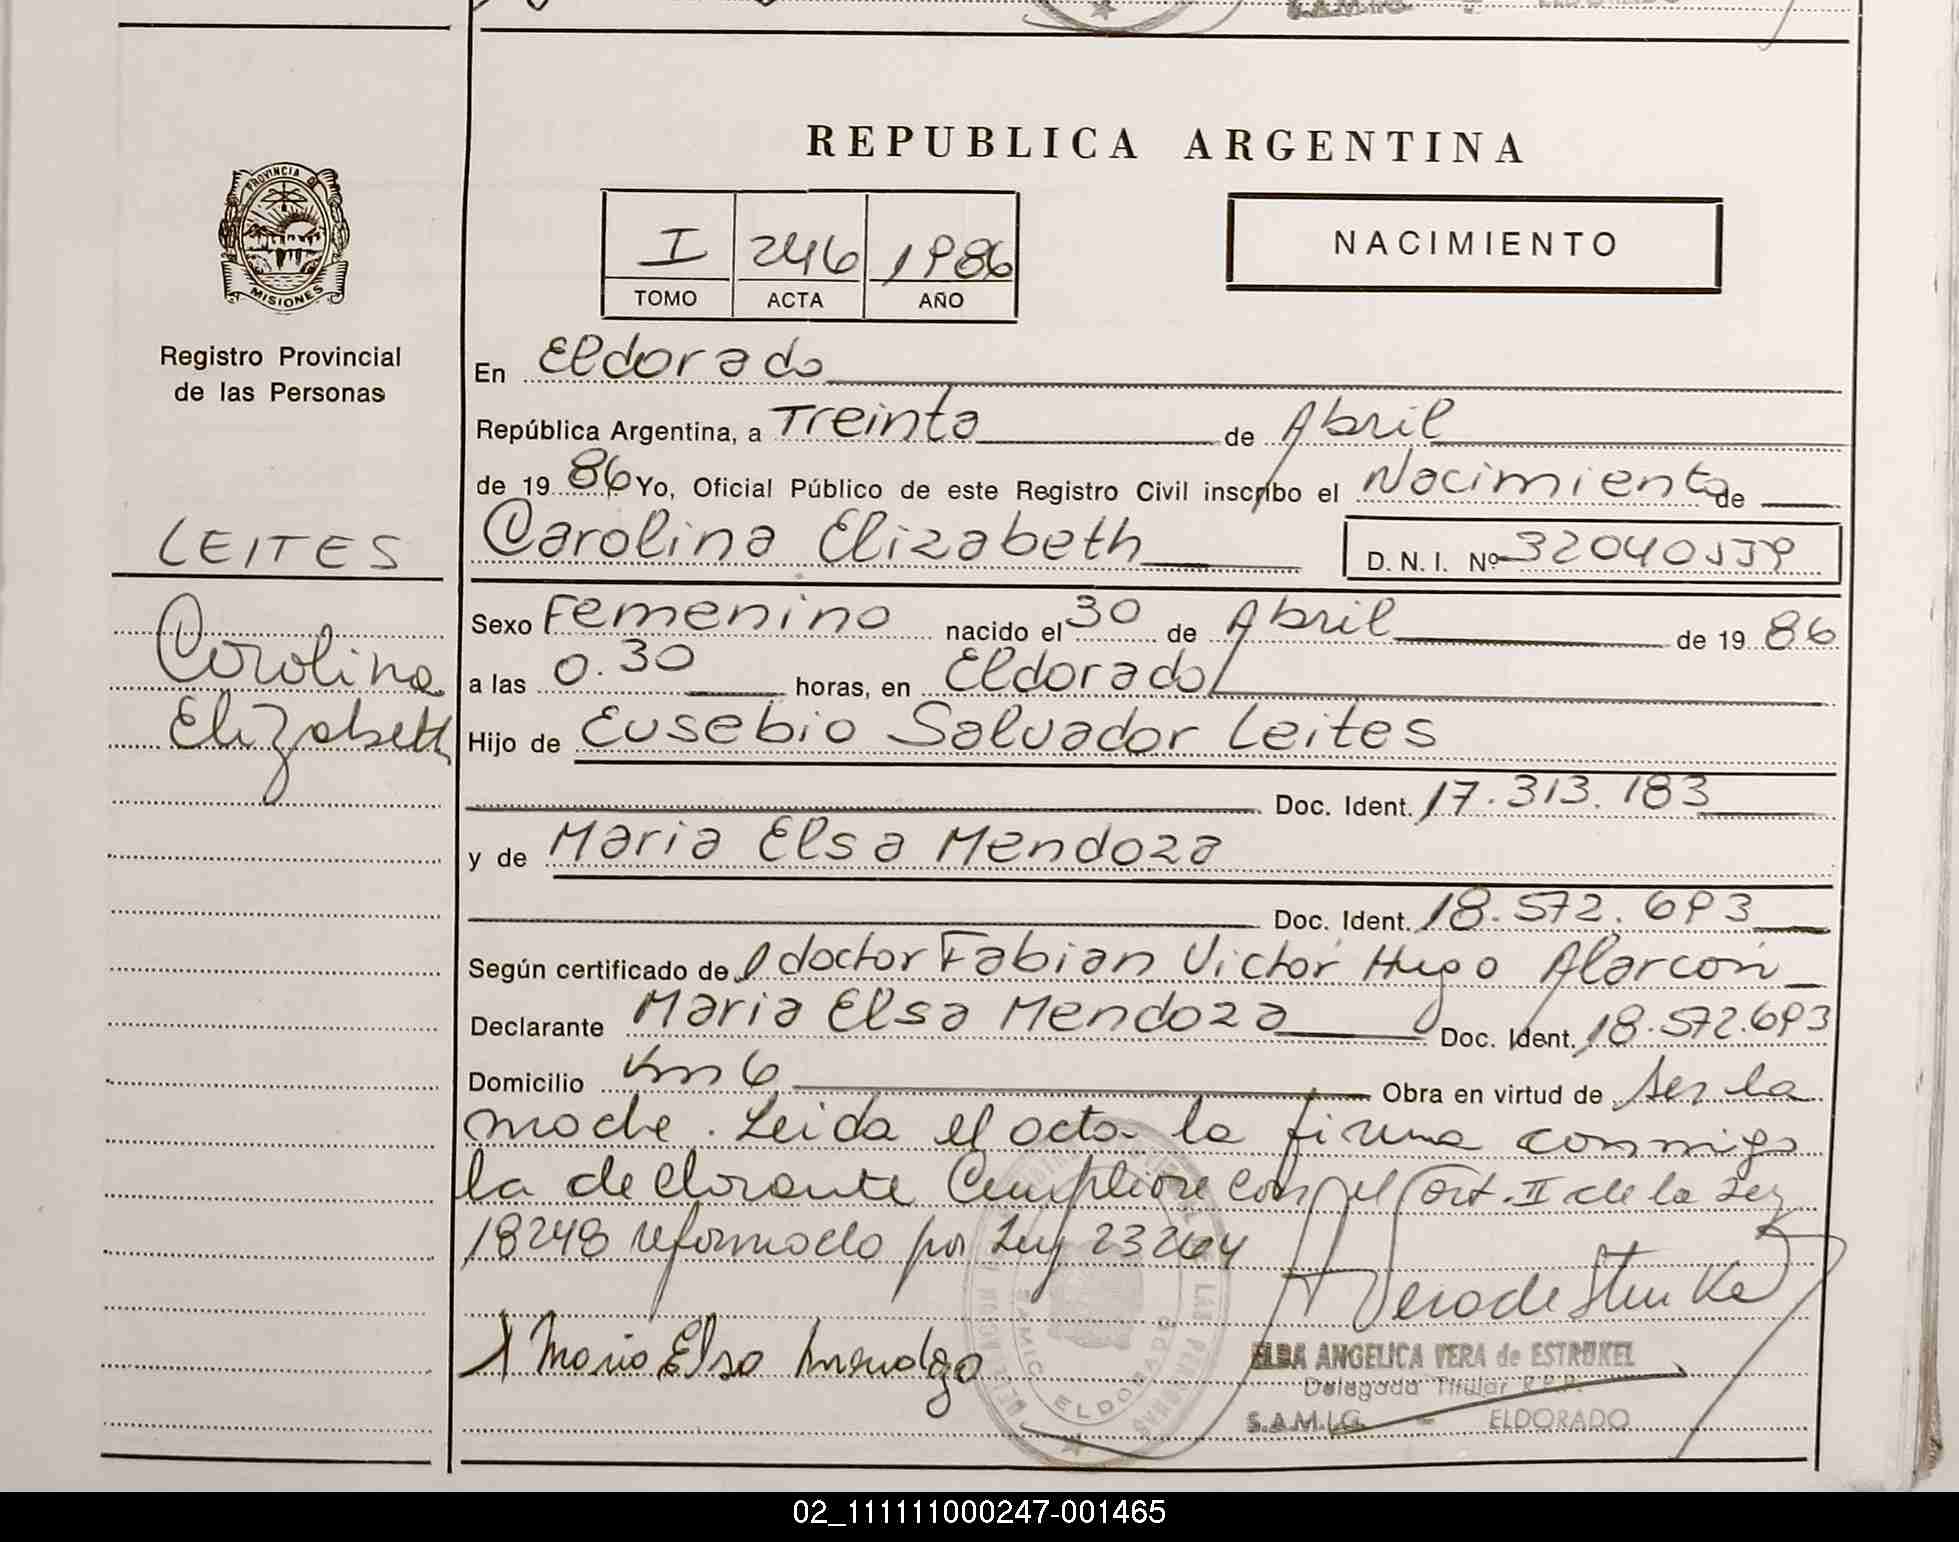 REPUBLICA ARGENTINA
PROVINCIA DE
MISIONES
Registro Provincial
de las Personas
I 246 1986
TOMO ACTA AÑO
NACIMIENTO
En Eldorado
República Argentina, a Treinta de Abril
de 1986 Yo, Oficial Público de este Registro Civil inscribo el Nacimiento de
LEITES
Carolina Elizabeth D. N. I. Nº 32040539
Carolina
Elizabeth
Sexo Femenino nacido el 30 de Abril de 1986
a las 0.30 horas, en Eldorado
Hijo de Eusebio Salvador Leites
Doc. Ident. 17.313.183
y de Maria Elsa Mendoza
Doc. Ident. 18.572.693
Según certificado del doctor Fabian Victor Hugo Alarcon
Declarante Maria Elsa Mendoza Doc. Ident. 18.572.693
Domicilio Km 6 Obra en virtud de ser la
madre. Leida el acta la firma conmigo
la declarante Cumpliose con el art. II de la Ley
18248 reformado por Ley 23264
Vera de Estrukel
Maria Elsa Mendoza
ELBA ANGELICA VERA de ESTRUKEL
Delegada Titular R.P.P.
S.A.M.I.C. - ELDORADO
SAMIC ELDORADO
02_111111000247-001465